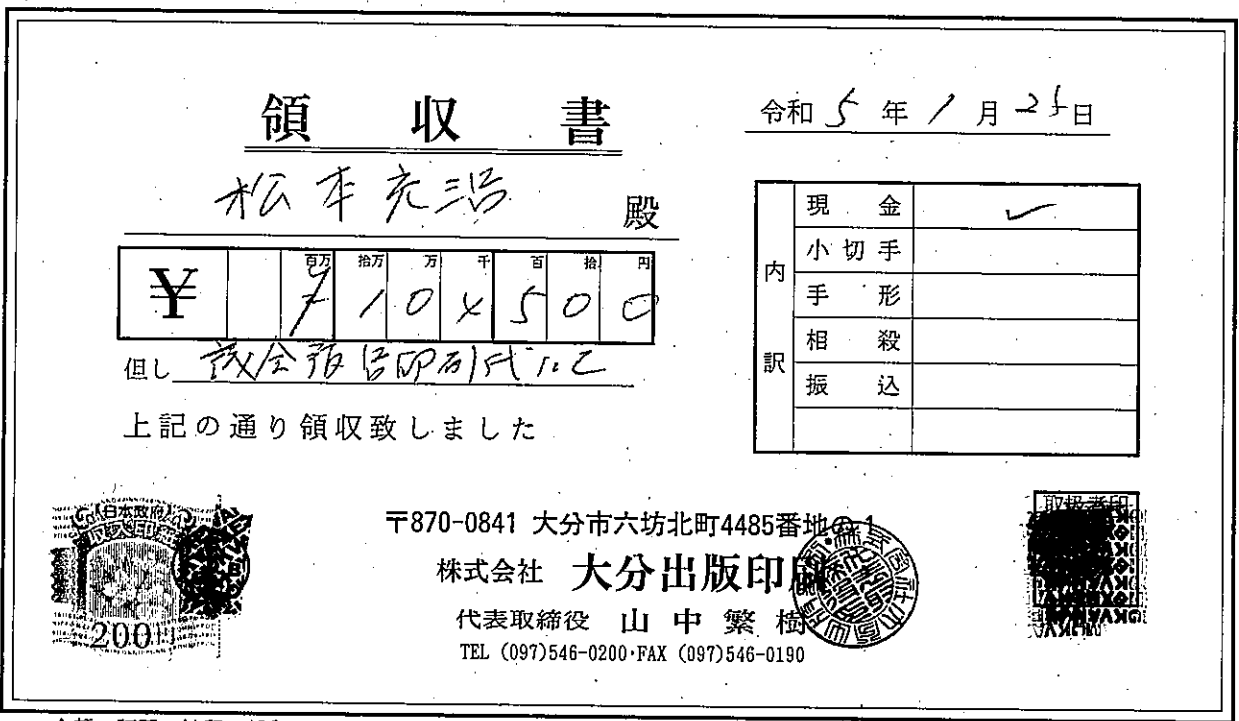 領収書
令和 5 年 1 月 25 日
松本充浩 殿
¥ 百万 拾万 万 千 百 拾 円
¥ 1 0 4 5 0 0
但し 議会報告印刷代として
上記の通り領収致しました
内訳
現金 ✓
小切手
手形
相殺
振込
日本政府
収入印紙
200
〒870-0841 大分市六坊北町4485番地の1
株式会社 大分出版印刷
代表取締役 山中繁樹
TEL (097)546-0200・FAX (097)546-0190
取扱者印